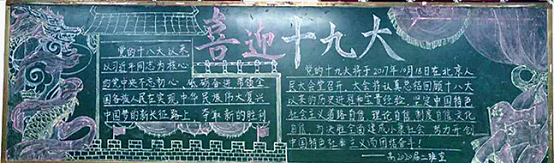 喜迎十九大
党的十八大以来
以习近平同志为核心
的党中央不忘初心 砥砺奋进 带领全
国各族人民在实现中华民族伟大复兴
中国梦的新长征路上 争取新的胜利
党的十九大将于2017年10月18日在北京人
民大会堂召开、大会将认真总结回顾十八大
以来的历史进程和宝贵经验、坚定中国特色
社会主义道路自信 理论自信 制度自信 文化
自信、为决胜全面建成小康社会 努力开创
中国特色社会主义而团结奋斗!
——高2020届二班宣